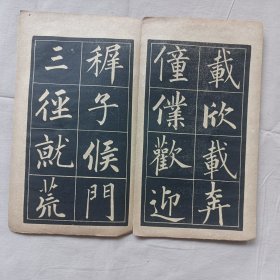 載欣載奔
僮僕歡迎
稺子候門
三徑就荒